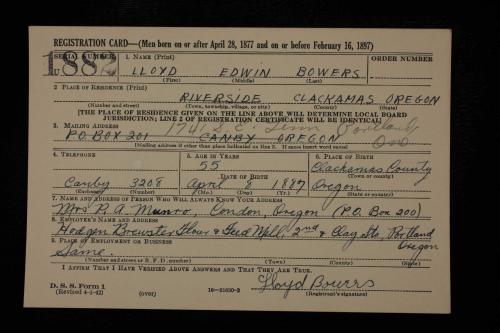 REGISTRATION CARD—(Men born on or after April 28, 1877 and on or before February 16, 1897)
SERIAL NUMBER 1. NAME (Print) ORDER NUMBER
U 188
LLOYD EDWIN BOWERS
(First) (Middle) (Last)
2. PLACE OF RESIDENCE (Print)
RIVERSIDE CLACKAMAS OREGON
(Number and street) (Town, township, village, or city) (County) (State)
[THE PLACE OF RESIDENCE GIVEN ON THE LINE ABOVE WILL DETERMINE LOCAL BOARD
JURISDICTION; LINE 2 OF REGISTRATION CERTIFICATE WILL BE IDENTICAL]
3. MAILING ADDRESS
174 Portland
P.O. BOX 201 CANBY OREGON Ore
[Mailing address if other than place indicated on line 2. If same insert word same]
4. TELEPHONE 5. AGE IN YEARS 6. PLACE OF BIRTH
55 Clackamas County
DATE OF BIRTH (Town or county)
Canby 3208 April 8 1887 Oregon
(Exchange) (Number) (Mo.) (Day) (Yr.) (State or country)
7. NAME AND ADDRESS OF PERSON WHO WILL ALWAYS KNOW YOUR ADDRESS
Mrs P. A. Munro, Condon, Oregon (P.O. Box 200)
8. EMPLOYER'S NAME AND ADDRESS
Hodgen Brewster Flour & Feed Mill, 2nd & Clay Sts, Portland
Oregon
9. PLACE OF EMPLOYMENT OR BUSINESS
Same.
(Number and street or R. F. D. number) (Town) (County) (State)
I AFFIRM THAT I HAVE VERIFIED ABOVE ANSWERS AND THAT THEY ARE TRUE.
D. S. S. Form 1 Lloyd Bowers
(Revised 4-1-42) (over) 16—21630-2 (Registrant's signature)